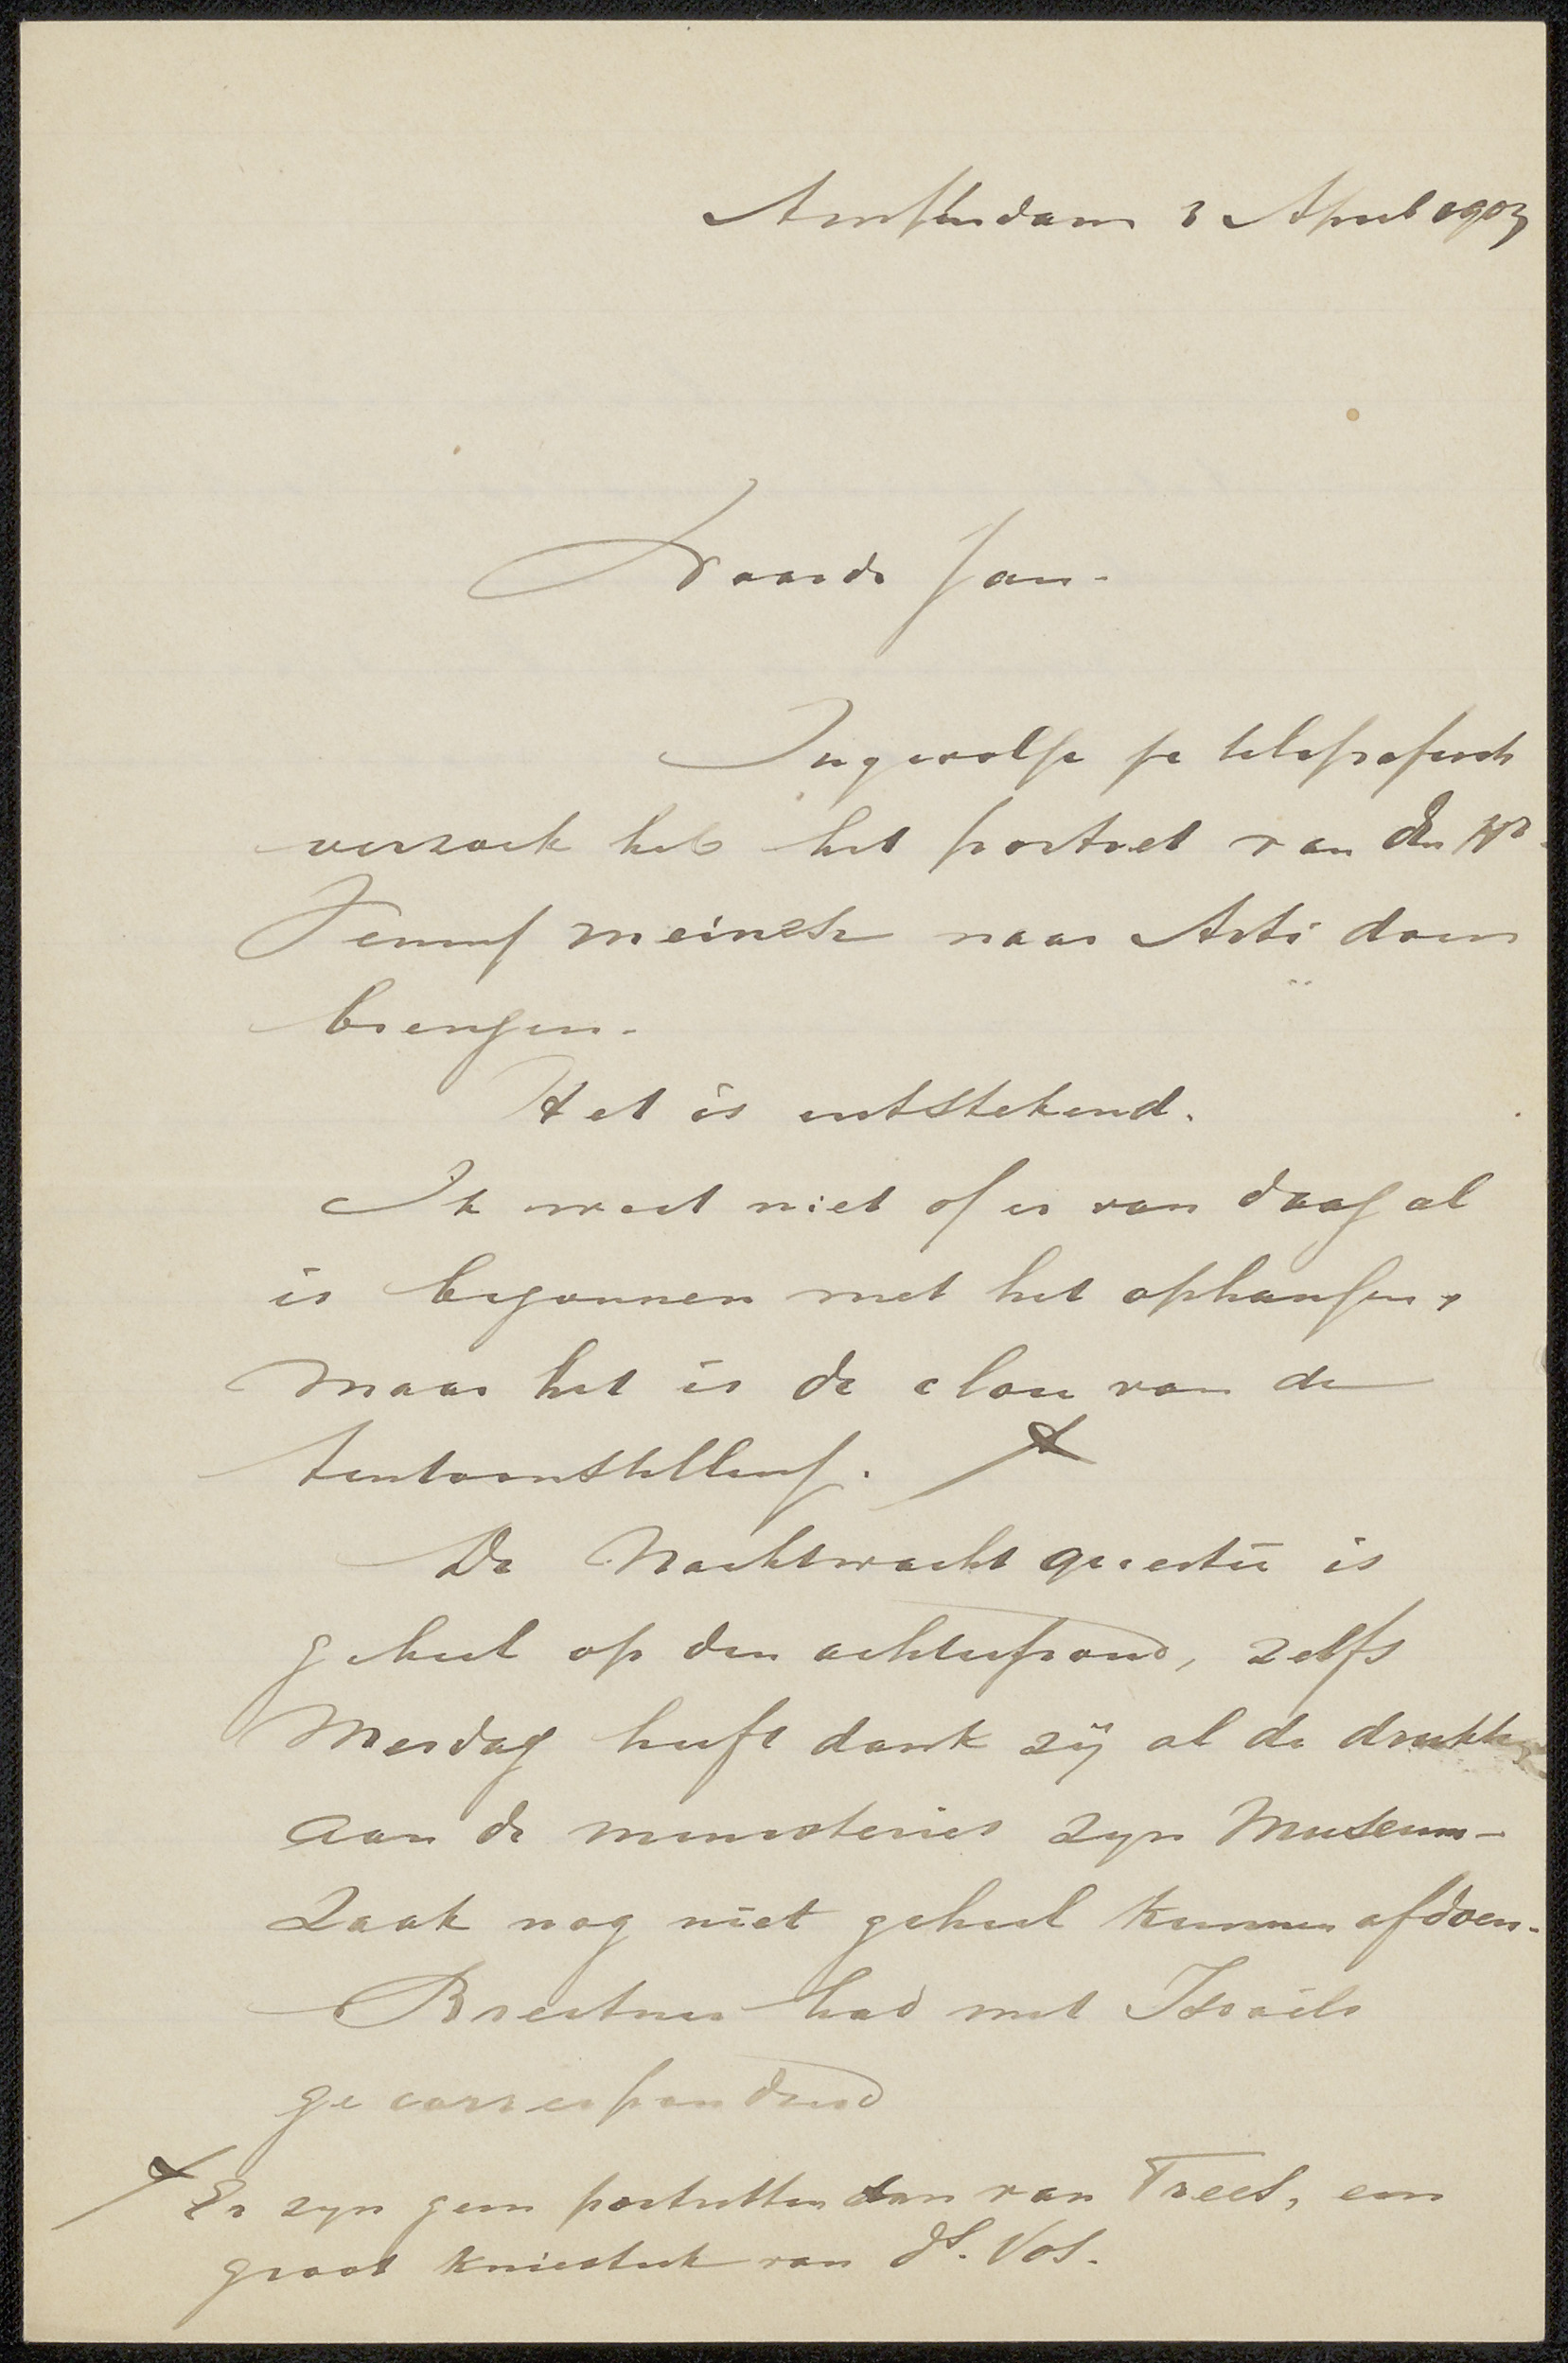 Amsterdam 3 April 1903
Waarde Jan.
Ingevolge je telegrafisch
verzoek heb het portret van den Hr.
naar Arti doen
brengen.
Het is uitstekend.
Ik weet niet of er van daag al
is begonnen met het ophangen,
maar het is de clou van de
tentoonstelling.
De Nachtwacht questie is
geheel op den achtergrond, zelfs
Mesdag heeft dank zij al de drukte
aan de ministeries zyn Museum-
zaak nog niet geheel kunnen afdoen.
Breitner had met Israëls
gecorrespondeerd
Er zyn geen portretten dan van Treet, een
groot kniestuk van ds. Vos.